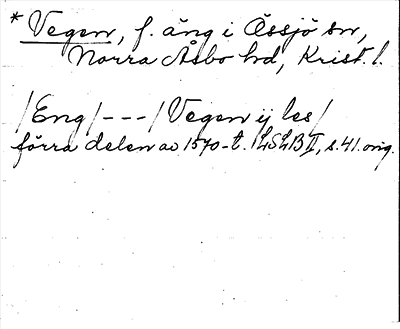 * Vegen, f. äng i Össjö sn,
Norra Åsbo hd, Krist. l.
/Eng/ - - - /Vegen ij les/
förra delen av 1570-t. LSLB II, s. 41. orig.